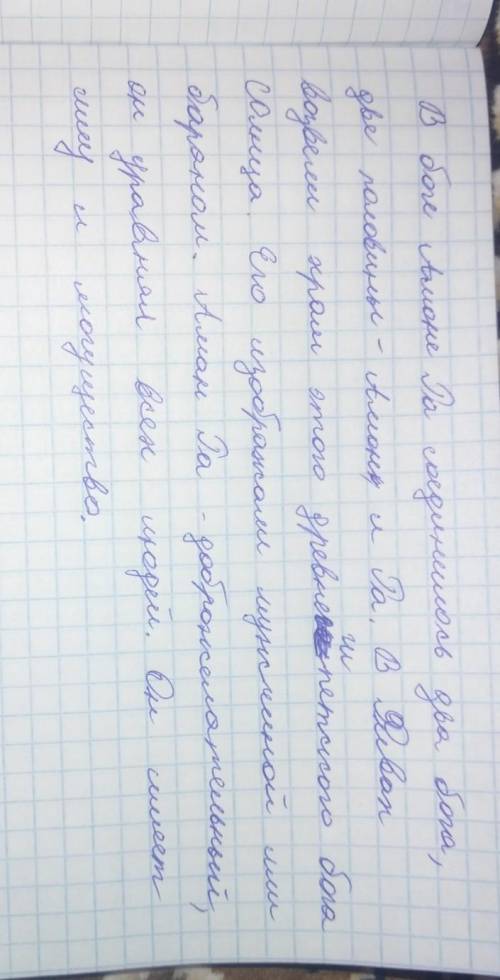 В боге Амоне Ра соединилось два бога,
две половины - Амон и Ра. В Фивах
возвели храм этого древнегипетского бога
солнца. Его изображали мужчиной или
бараном. Амон Ра - доброжелательный,
он уравнял всех людей. Он имеет
силу и могущество.